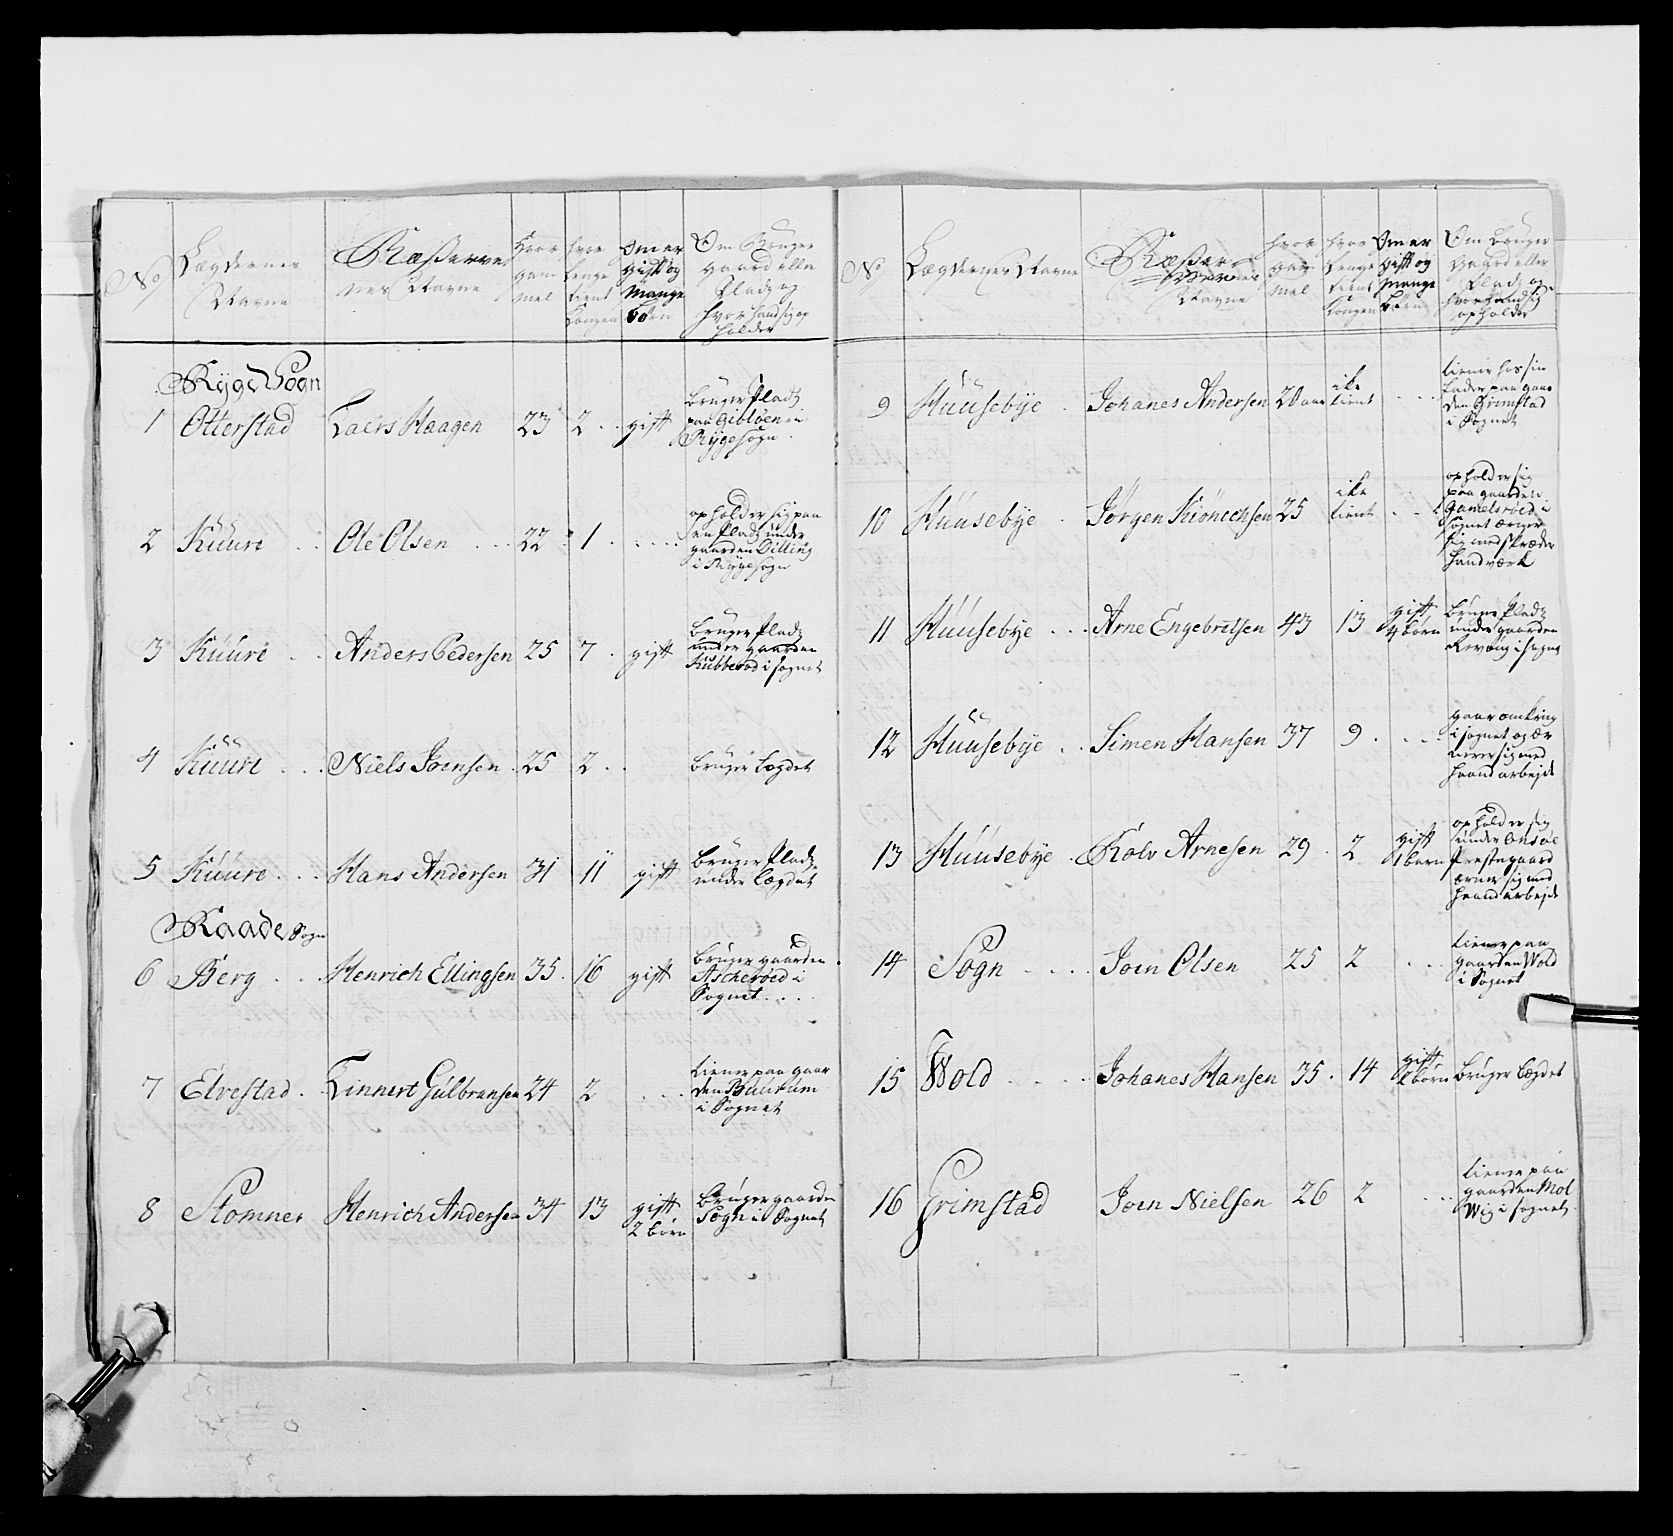 No
Lægdernes
Navne
Reserver
nes Navne
Hvor
gam
mel
hvor
lenge
tient
Kongen
Om er
gift og
mange
børn
Om Bruger
gaard eller
Plads og
hvor hand sig op
holder
Rygge Sogn
1 Otterstad Laers Haagen 23 2 gift
bruger Plads
paa Gibløen i
Rygge sogn
2 Kuure Ole Olsen 22 1
opholder sig paa
en Plads under
gaarden Dilling
i Rygge sogn
3 Kuure Anders Pedersen 25 7 gift
bruger Plads
under gaarden
Kubberød i sognet
4 Kuure Niels Joensen 25 2
bruger Lægdet
5 Kuure Hans Andersen 31 11 gift
bruger Plads
under Lægdet
Raade Sogn
6 Berg Henrich Ellingsen 35 16 gift
bruger gaarden
Ascherøed i
Sognet
7 Elvestad Linnert Gulbransen 24 2
tiener paa gaar
den Buurum
i Sognet
8 Stomner Henrich Andersen 34 13 gift
2 børn
bruger gaarden
Sogn i Sognet
No
Lægdernes Navne
Reser
vernes
Navne
hvor
gam
mel
hvor
lenge
tient
Kongen
Om er
gift og
mange
børn
Om bruger
Gaard eller
Plads og
hvor hand sig
opholder
9 Huusebye Johanes Andersen 20 aar
ike
tient
tiener hos sin
fader paa gaar
den Grimstad
i Sognet
10 Huusebye Jørgen 25
ike
tient
opholder sig
paa gaarden
Gamelsrøed i
sognet ærnerer
sig med skræder
handværk
11 Huusebye Arne Engebretsen 43 13
gift
4 børn
bruger Plads
under gaarden
i sognet
12 Huusebye Simen Hansen 37 9
gaar omkring
i sognet og ær
nerer sig med
haand arbejde
13 Huusebye Kolv Arnesen 29 2
gift
1 børn
opholder sig
under Onsøe
Prestegaard
ærner sig med
haand arbejde
14 Sogn Joen Olsen 25 2
tiener paa
gaarden Wold
i Sognet
15 Wold Johanes Hansen 35 14
gift
børn
bruger Lægdet
16 Grimstad Joen Nielsen 26 2
tiener paa
gaarden Mol
Wig i sognet